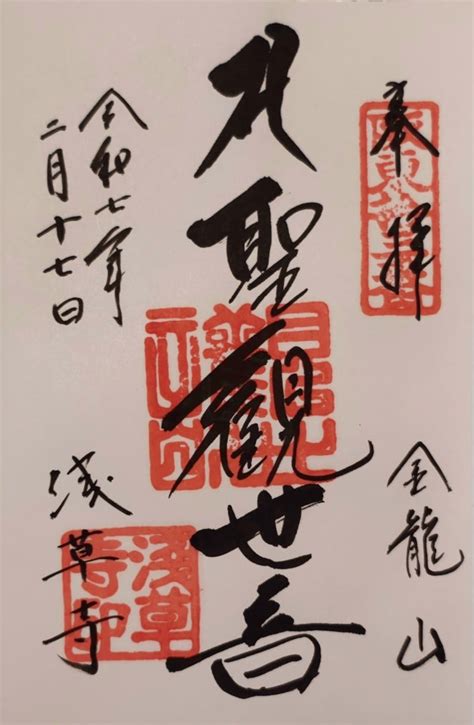 奉拝
金龍山
聖観世音
令和七年
二月十七日
浅草寺
浅草寺印